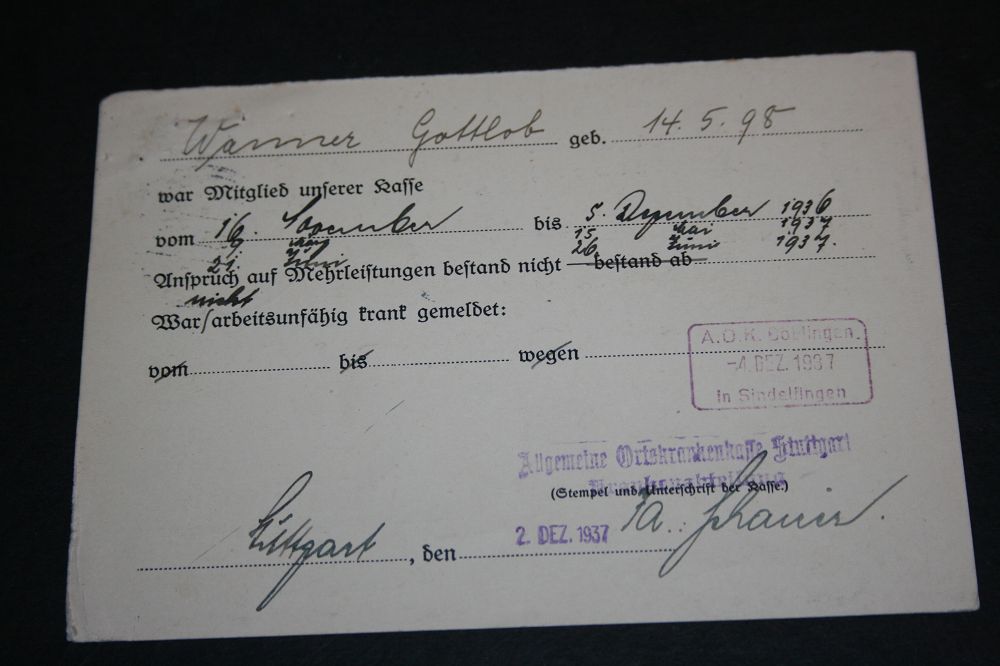 Wanner Gottlob geb. 14. 5. 98
war Mitglied unserer Kasse
vom 16. November bis 5. Dezember 1936
8 Mai 15 Mai 1937
21 Juni 26 Juni 1937.
Anspruch auf Mehrleistungen bestand nicht bestand ab
nicht
War/arbeitsunfähig krank gemeldet:
vom bis wegen
A.O.K. Böblingen.
-4. DEZ. 1937
in Sindelfingen
Allgemeine Ortskrankenkasse Stuttgart
(Stempel und Unterschrift der Kasse.)
2. DEZ. 1937
Stuttgart, den